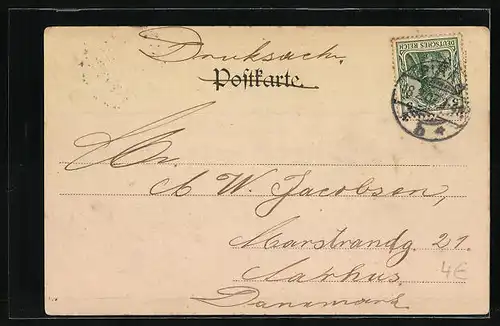 Drucksache.
Postkarte.
DEUTSCHES REICH
Hr.
A W. Jacobsen,
Marstrandg. 21.
Aarhus.
Danemark
4€